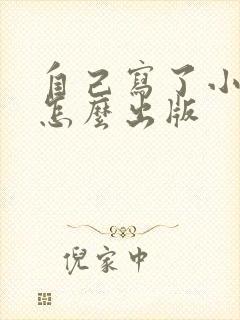 自己寫了小
怎麼出版
倪家中